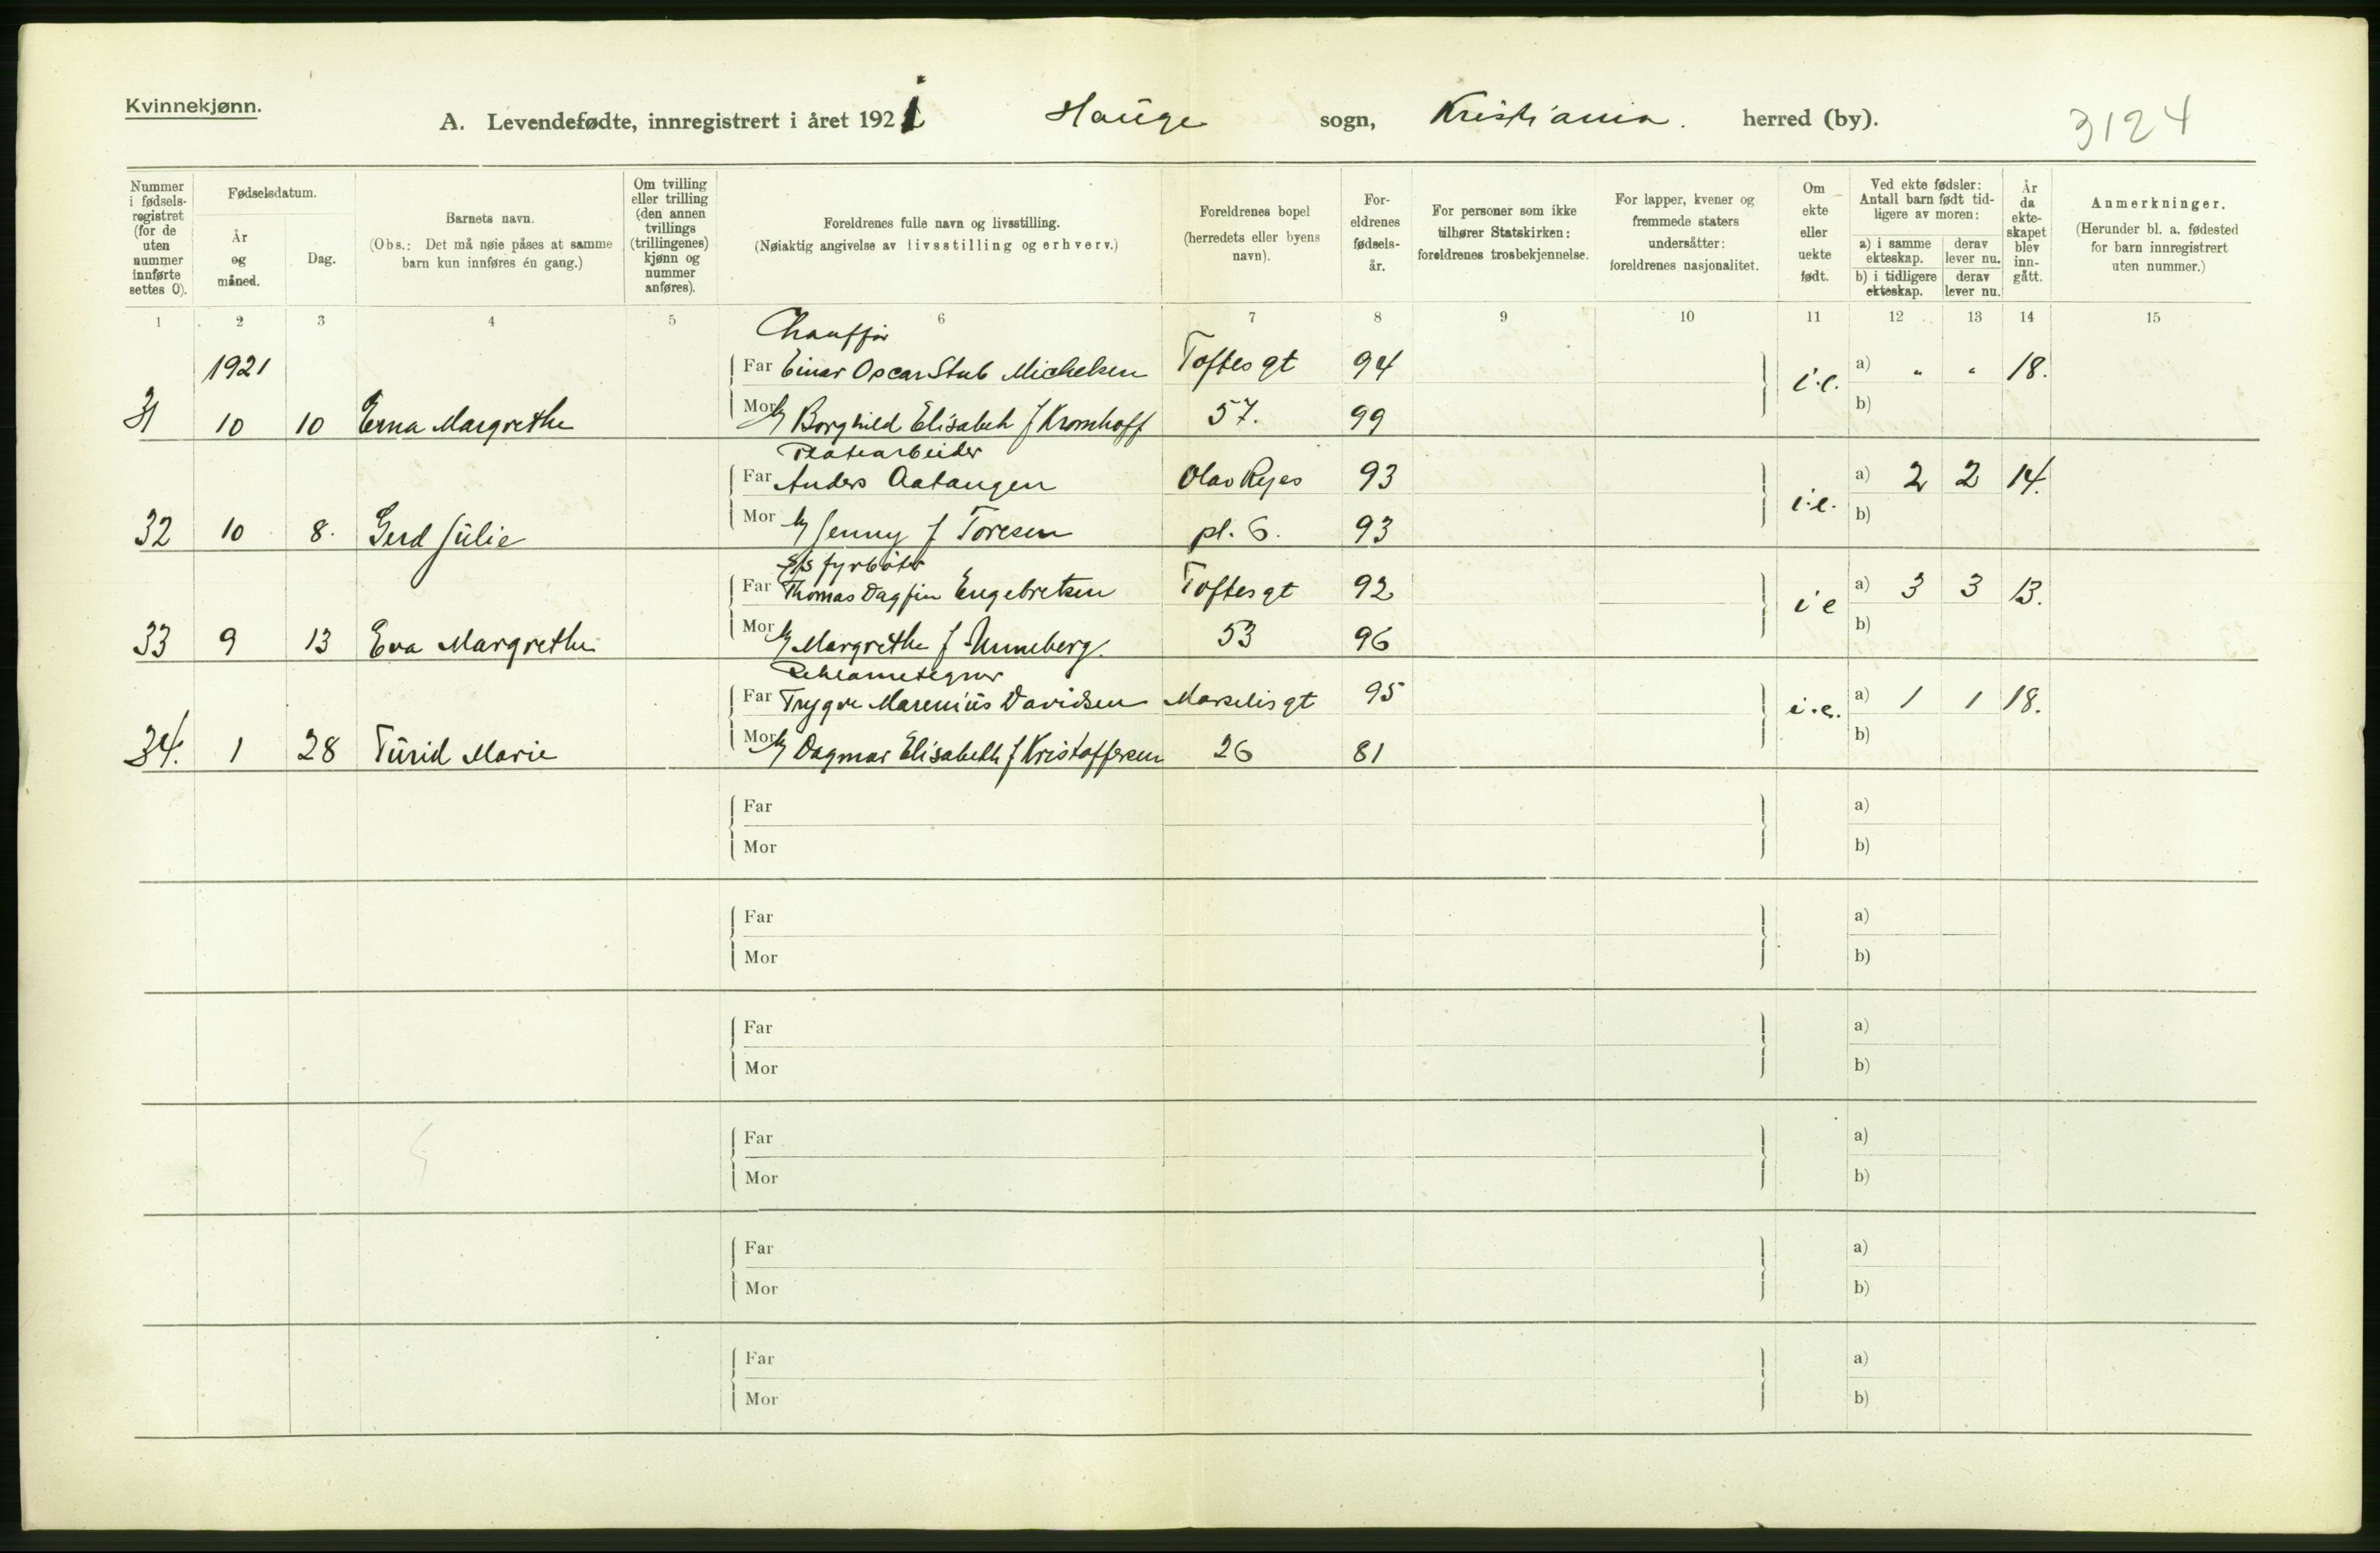 Kvinnekjønn.
A. Levendefødte, innregistrert i året 1921 Hauge sogn, Kristiania. herred (by). 3124
Nummer i fødsels- registret (for de uten nummer innførte settes 0).
Fødselsdatum.
År og måned.
Dag.
Barnets navn.
(Obs.: Det må nøie påses at samme barn kun innføres én gang.)
Om tvilling eller trilling (den annen tvillings (trillingenes) kjønn og nummer anføres).
Foreldrenes fulle navn og livsstilling.
(Nøiaktig angivelse av livsstilling og erhverv.)
Foreldrenes bopel (herredets eller byens navn).
For- eldrenes fødsels- år.
For personer som ikke tilhører Statskirken: foreldrenes trosbekjennelse.
For lapper, kvener og fremmede staters undersåtter: foreldrenes nasjonalitet.
Om ekte eller uekte født.
Ved ekte fødsler: Antall barn født tid- ligere av moren:
a) i samme ekteskap.
derav lever nu.
b) i tidligere ekteskap.
derav lever nu.
År da ekte- skapet blev inn- gått.
Anmerkninger.
(Herunder bl. a. fødested for barn innregistrert uten nummer.)
1 2 3 4 5 6 7 8 9 10 11 12 13 14 15
Chauffør
1921 Far Einar Oscar Stub Michelsen Toftes gt 94 i.e. a) " " 18.
31 10 10 Erna Margrethe Mor Borghild Elisabeth f Kromhoff 57. 99 b)
Platearbeider
Far Anders Aatangen Olav Ryes 93 i.e. a) 2 2 14.
32 10 8. Gerd Julie Mor Jenny f Toresen pl. 6. 93 b)
S/S fyrbøter
Far Thomas Dagfin Engebretsen Toftes gt 92 i e a) 3 3 13.
33 9 13 Eva Margrethe Mor Margrethe f Unneberg. 53 96 b)
Reklametegner
Far Trygve Marenius Davidsen Markelis gt 95 i.e. a) 1 1 18.
34. 1 28 Turid Marie Mor Dagmar Elisabeth f Kristoffersen 26 81 b)
Far a)
Mor b)
Far a)
Mor b)
Far a)
Mor b)
Far a)
Mor b)
Far a)
Mor b)
Far a)
Mor b)